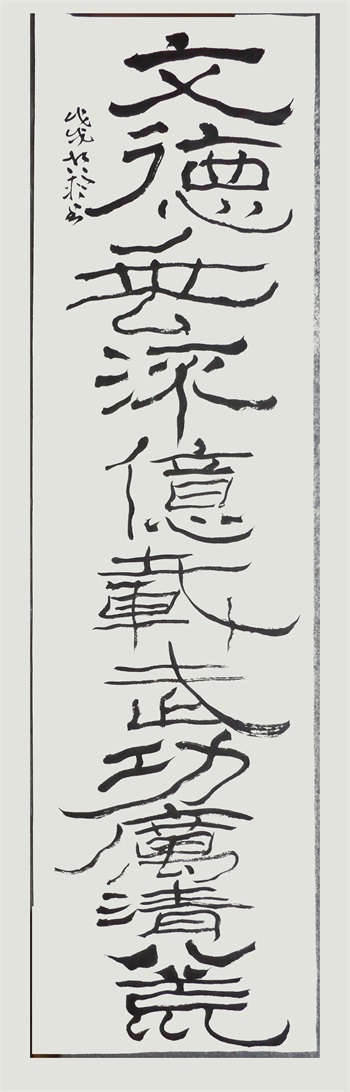 文德垂流億載武功廣清八荒
戊戌